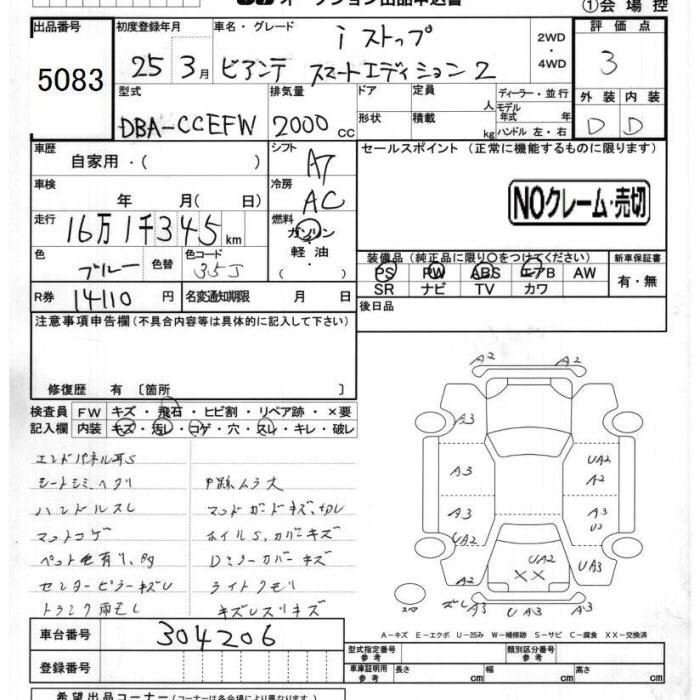 オークション出品申込書
①会場控
出品番号 初度登録年月 車名・グレード iストップ 2WD・4WD 評価点
5083 25年3月 ビアンテ スマートエディション2 3
型式 排気量 ドア 定員 人 ディーラー・並行 外装 内装
DBA-CCEFW 2000cc 形状 積載 kg モデル年式 年 ハンドル 左・右 D D
車歴 自家用・( ) シフト AT セールスポイント (正常に機能するものに限ります)
車検 年 月( 日) 冷房 AC
NOクレーム・売切
走行 16万1千345km 燃料 ガソリン
軽油
・( )
色 ブルー 色替 色コード 35J
装備品 (純正品に限り○をつけてください) 新車保証書
PS PW ABS エアB AW 有・無
SR ナビ TV カワ
R券 14110円 名変通知期限 月 日 後日品
注意事項申告欄(不具合内容等は具体的に記入して下さい)
修復歴 有 〔箇所 〕
検査員 FW キズ・飛石・ヒビ割・リペア跡・×要
記入欄 内装 キズ・汚レ・コゲ・穴・スレ・キレ・破レ
エンドパネル耳S
シートシミ、ヘタリ
ハンドルスレ マッドガードキズ、切レ
マットコゲ ホイルS、カバーキズ
ペット毛有り、 Dミラーカバーキズ
センターピラーキズレ ライトクモリ
トランク雨モレ キズレスリキズ
A2 A2
A3
A3 UA2
A2
A3 A3
UA2
XX
A2 UA3
スペ ズレA3 UA3 A3
A-キズ E-エクボ U-凹み W-補修跡 S-サビ C-腐食 XX-交換済
車台番号 304206
型式指定番号 参考 類別区分番号 参考
登録番号 車庫証明用 参考 長さ cm 幅 cm 高さ cm
希望出品コーナー(コーナーは各会場により異なります)